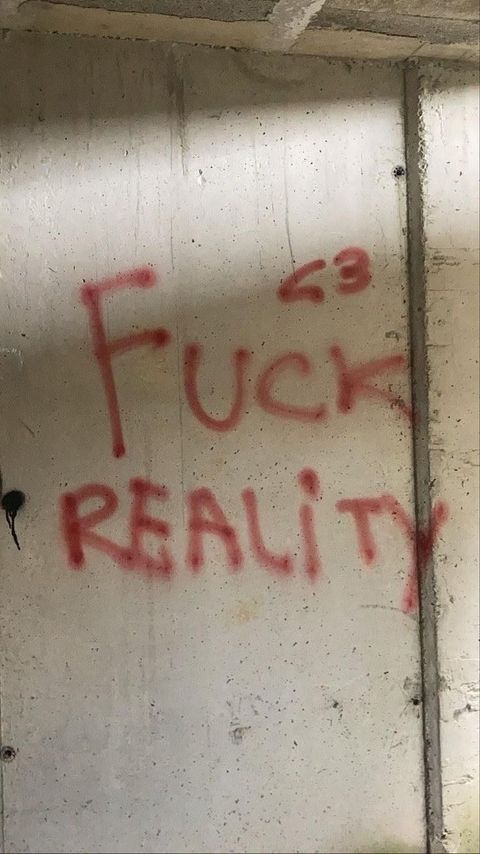 <3
Fuck
REALiTY